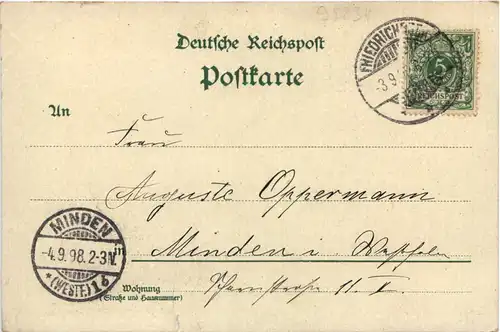 95234
Deutsche Reichspost
Postkarte
FRIEDRICH
-3.9.
5
REICHSPOST
An
Frau
Auguste Oppermann
in
Minden i Westfalen
MINDEN
-4.9.98.2-3N.
*(WESTF.)1b
Wohnung
(Straße und Hausnummer)
11. I.